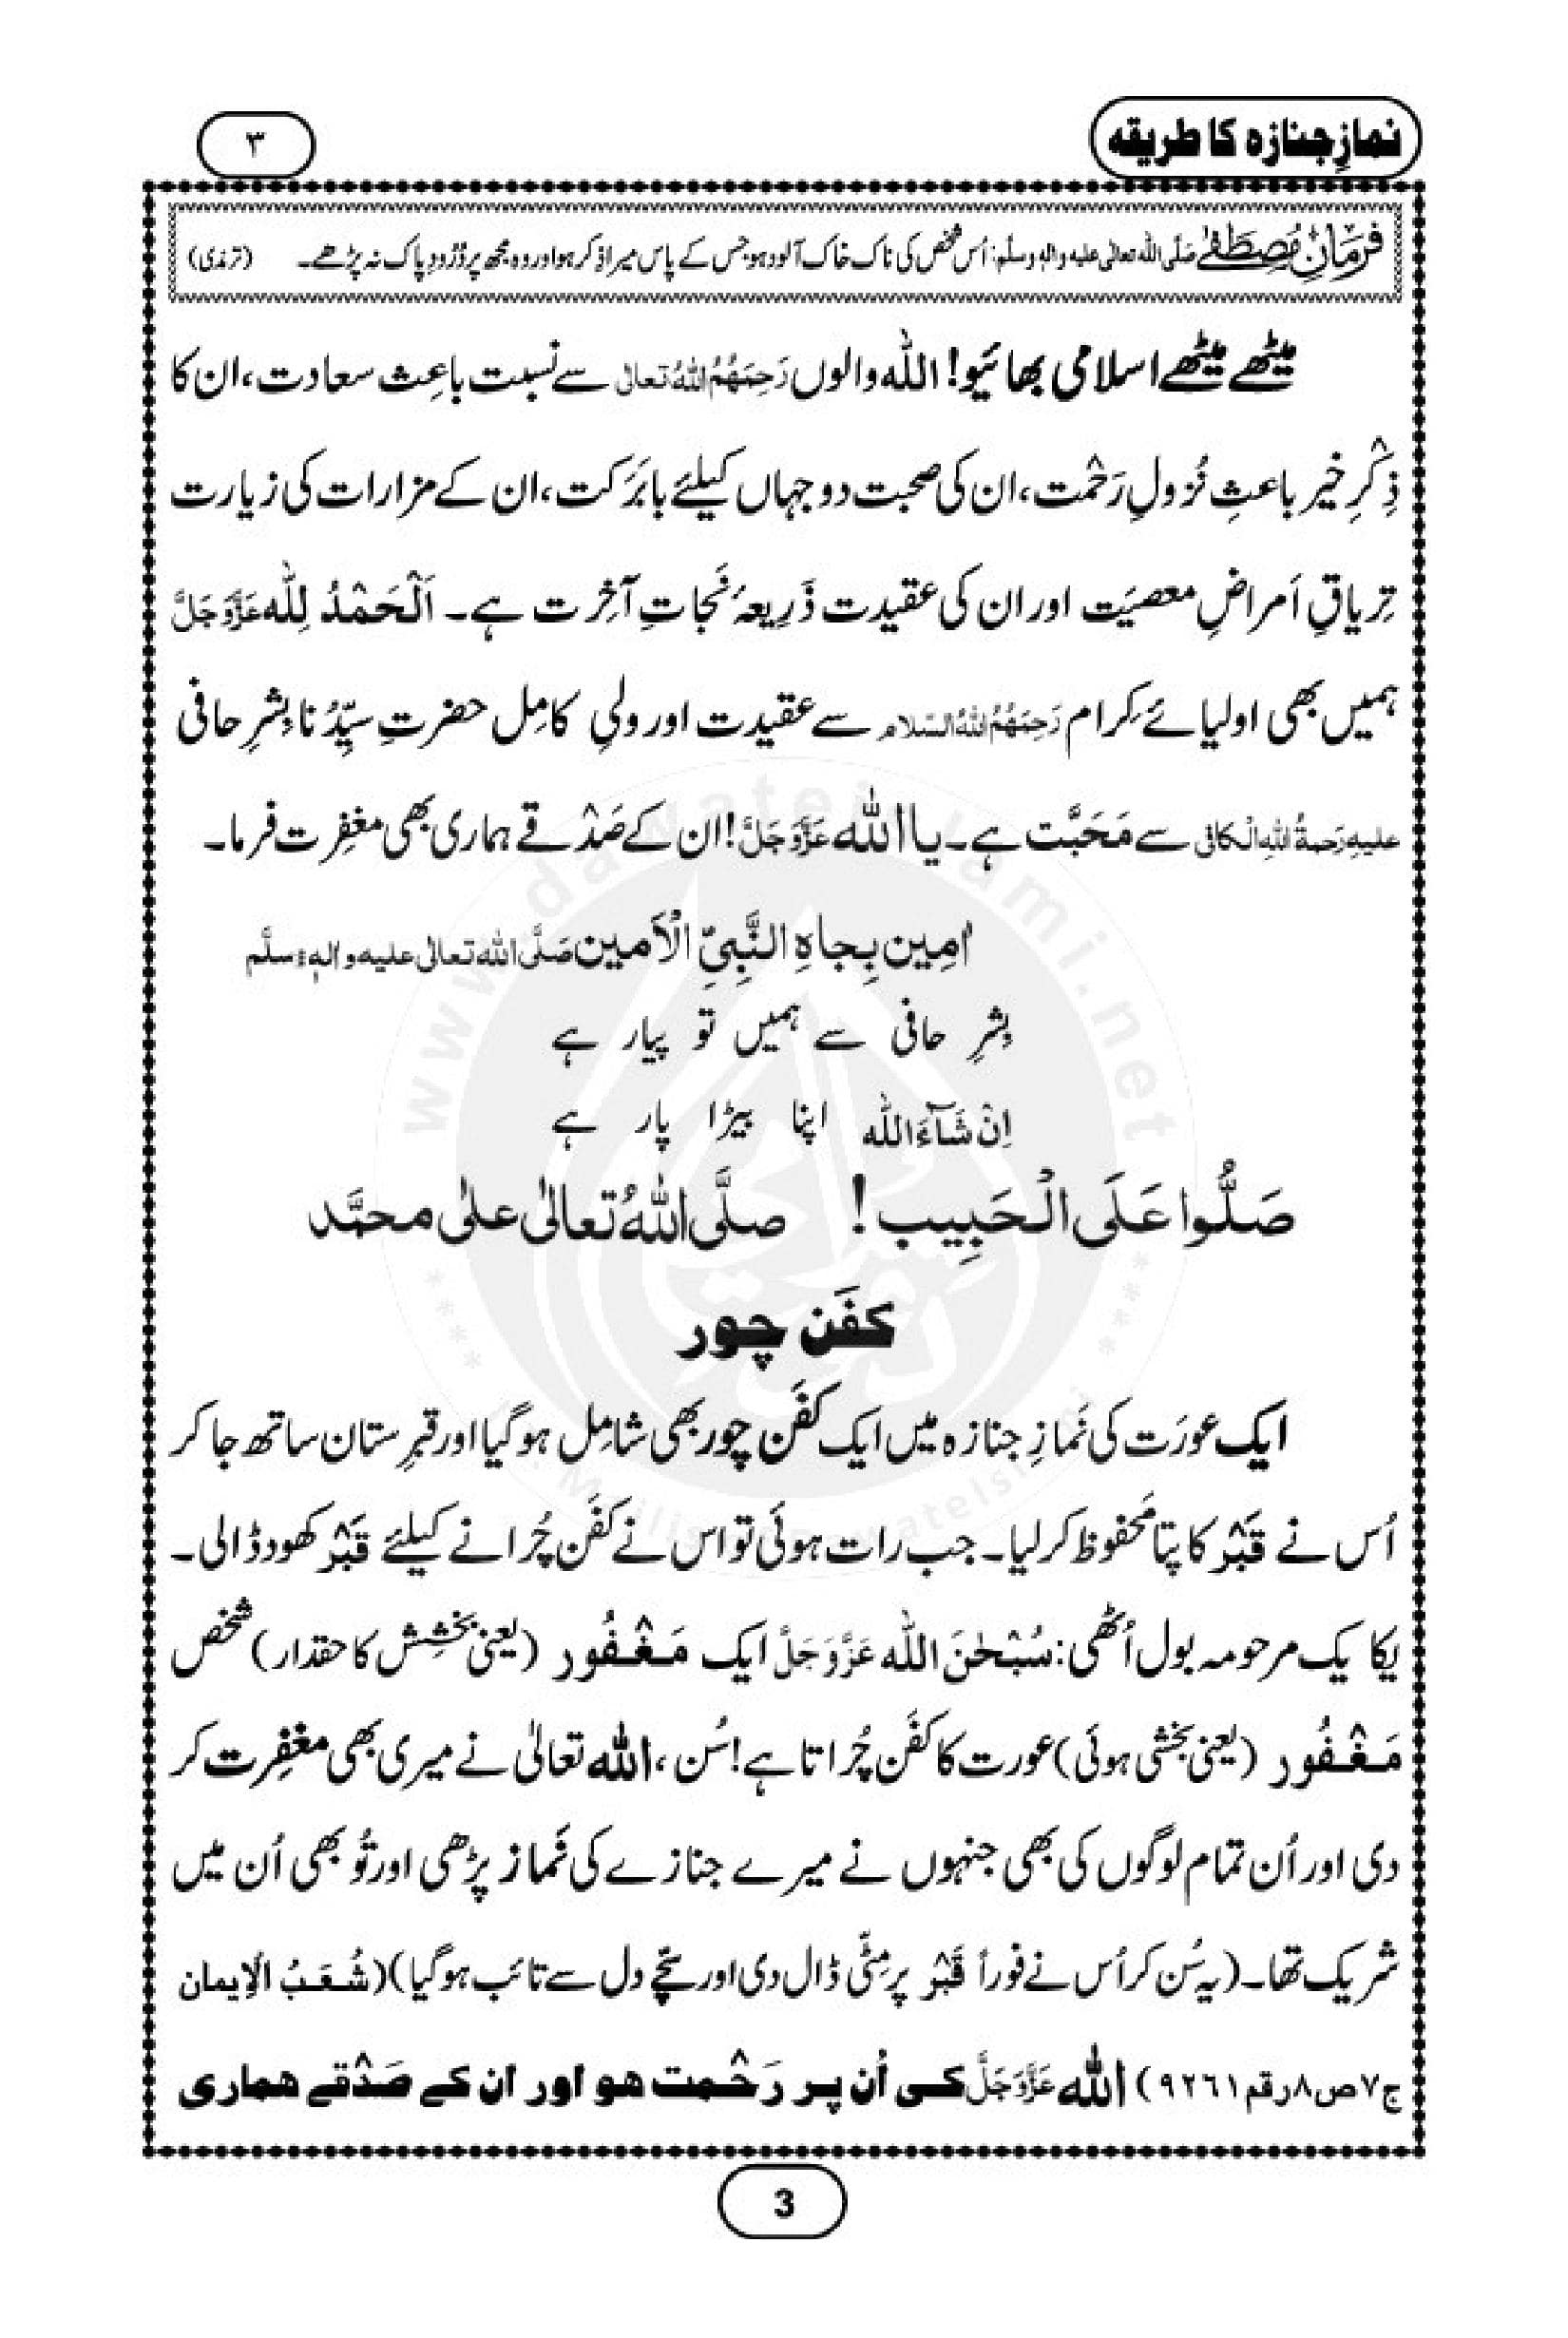 نمازِ جنازہ کا طریقہ
۳
فرمانِ مُصطَفٰے صَلَّی اللہ تعالٰی علیہ واٰلہٖ وسلَّم: اُس شخص کی ناک خاک آلود ہو جس کے پاس میرا ذکر ہو اور وہ مجھ پر دُرُودِ پاک نہ پڑھے۔ (ترمذی)
میٹھے میٹھے اسلامی بھائیو! اللہ والوں رَحِمَہُمُ اللہُ تعالٰی سے نسبت باعِث سعادت، ان کا
ذِکْرِ خیر باعثِ نُزولِ رَحْمت، ان کی صحبت دو جہاں کیلئے بابَرَکت، ان کے مزارات کی زیارت
تِریاقِ اَمراضِ معصیَت اور ان کی عقیدت ذَرِیعۂ نَجاتِ آخِرت ہے۔ اَلْحَمْدُ لِلّٰہ عَزَّوَجَلَّ
ہمیں بھی اولیائے کِرام رَحِمَہُمُ اللہُ السّلام سے عقیدت اور ولیِ کامِل حضرتِ سیِّدُنا بِشرِ حافی
علیہِ رَحمۃُ اللہِ الْکافی سے مَحَبَّت ہے۔ یا اللہ عَزَّوَجَلَّ! ان کے صَدْقے ہماری بھی مغفِرت فرما۔
اٰمِین بِجاہِ النَّبِیِّ الْاَمین صَلَّی اللہ تعالٰی علیہ واٰلہٖ وسلَّم
بِشرِ حافی سے ہمیں تو پیار ہے
اِنْ شَآءَ اللہ اپنا بیڑا پار ہے
صَلُّوا عَلَی الْحَبِیب! صلَّی اللہُ تعالٰی علٰی محمَّد
کفَن چور
ایک عورَت کی نَمازِ جنازہ میں ایک کفَن چور بھی شامِل ہو گیا اور قبرِستان ساتھ جا کر
اُس نے قَبْر کا پتا محفوظ کر لیا۔ جب رات ہوئی تو اس نے کفَن چُرانے کیلئے قَبْر کھود ڈالی۔
یکایک مرحومہ بول اُٹھی: سُبْحٰنَ اللہ عَزَّوَجَلَّ ایک مَغْفُور (یعنی بخشِش کا حقدار) شخص
مَغْفُور (یعنی بخشی ہوئی) عورت کا کفَن چُراتا ہے! سُن، اللہ تعالٰی نے میری بھی مغفِرت کر
دی اور اُن تمام لوگوں کی بھی جنہوں نے میرے جنازے کی نَماز پڑھی اور تُو بھی اُن میں
شریک تھا۔ (یہ سُن کر اُس نے فوراً قَبْر پر مِٹّی ڈال دی اور سچّے دل سے تائب ہو گیا) (شُعَبُ الْاِیمان
ج۷ص۸رقم۹۲۶۱) اللہ عَزَّوَجَلَّ کی اُن پر رَحْمت ہو اور ان کے صَدْقے ہماری
3
www.dawateislami.net